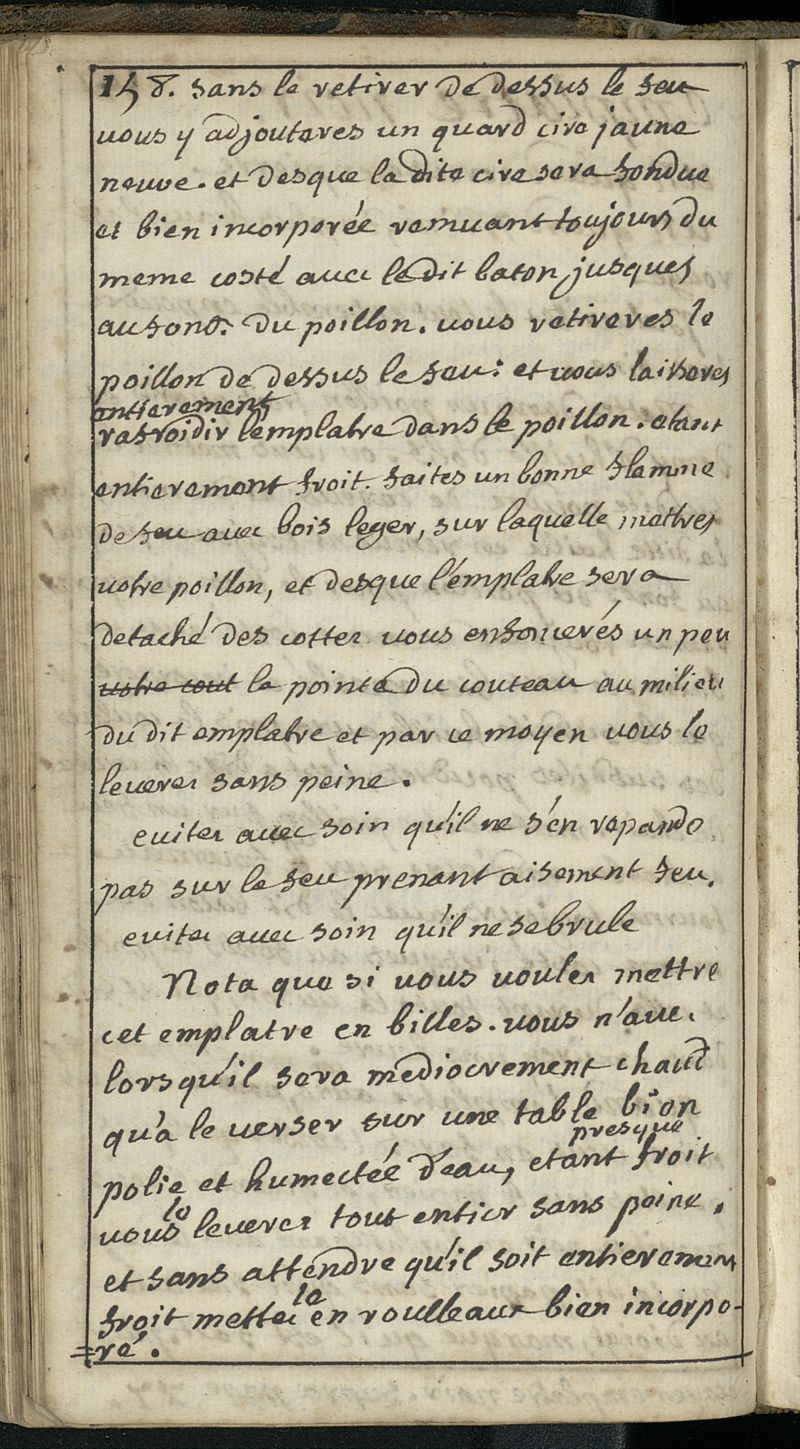 158. sans le retirer de dessus le feu
vous y adjouteres un quard cire jaune
neuve. et desque la dite cire sera fondue
et bien incorporée remuant toujours du
meme costé avec le dit baton jusques
au fond. du poillon. vous retireres le
poillon de dessus le feu: et vous laisseres
entierement
rafroidir l'emplatre dans le poillon. etant
entierement froit. faites un bonne flamme
de feu avec bois leger, sur laquelle mettres
votre poillon, et desque l'emplatre sera
detaché des cottes vous enfoncerés un peu
votre cout la pointe du couteau au milieu
du dit emplatre et par ce moyen vous le
leveres sans peine.
evites avec soin qu'il ne s'en repande
pas sur le feu prenant aisement feu.
evites avec soin qu'il ne se brule
Nota que si vous voules mettre
cet emplatre en billes. vous n'aves
lorsqu'il sera mediocrement chaud
qu'a le verser sur une table bien
presque
polie et humectée d'eau, etant froit
le
vous leveres tout entier sans peine.
et sans attendre qu'il soit entierement
le
froit mettes en roulleaux bien incorpo-
=ré.